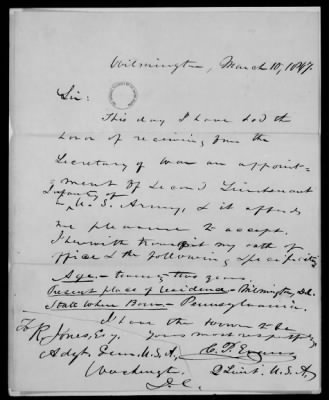 Wilmington, March 10, 1847.
Sir:
This day I have had the
honor of receiving from the
Secretary of war an appoint-
ment of Second Lieutenant
Infantry of
U. S. Army, & it affords
me pleasure to accept.
I herewith transmit my oath of
office & the following specificity
Age - twenty two years.
Present place of residence - Wilmington, Del.
State Where Born - Pennsylvania.
I have the honor to be
Yours most respectfully
To R. Jones, Esq.
Adgt. Genl. U.S.A.
C. P. Evans
2 Lieut. U.S.A.
Washington
D.C.